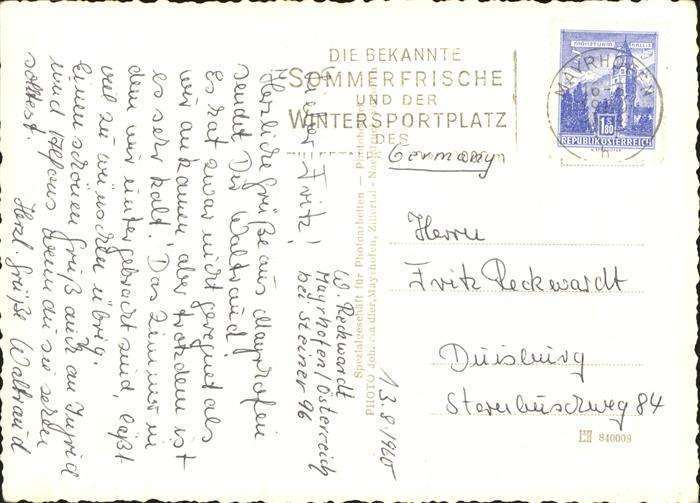 DIE BEKANNTE
SOMMERFRISCHE
UND DER
WINTERSPORTPLATZ
DES
MAYRHOFEN
1.80
REPUBLIK ÖSTERREICH
Germany
Herrn
Fritz Reckwardt
Duisburg
84
840009
Spezialgeschäft für Photoarbeiten
PHOTO Mayrhofen, Zillertal
W. Reckwardt
Mayrhofen/Österreich
bei Steiner 96
13.8.1960
Lieber Fritz!
Herzliche Grüße aus Mayrhofen
sendet Dir Waltraud!
Es hat zwar nicht geregnet als
wir ankamen, aber trotzdem ist
es sehr kalt. Das Zimmer in
dem wir untergebracht sind, läßt
viel zu wünschen übrig.
Einen schönen Gruß auch an Ingrid
und wenn du sie sehen
solltest.
Herzl. Grüße Waltraud